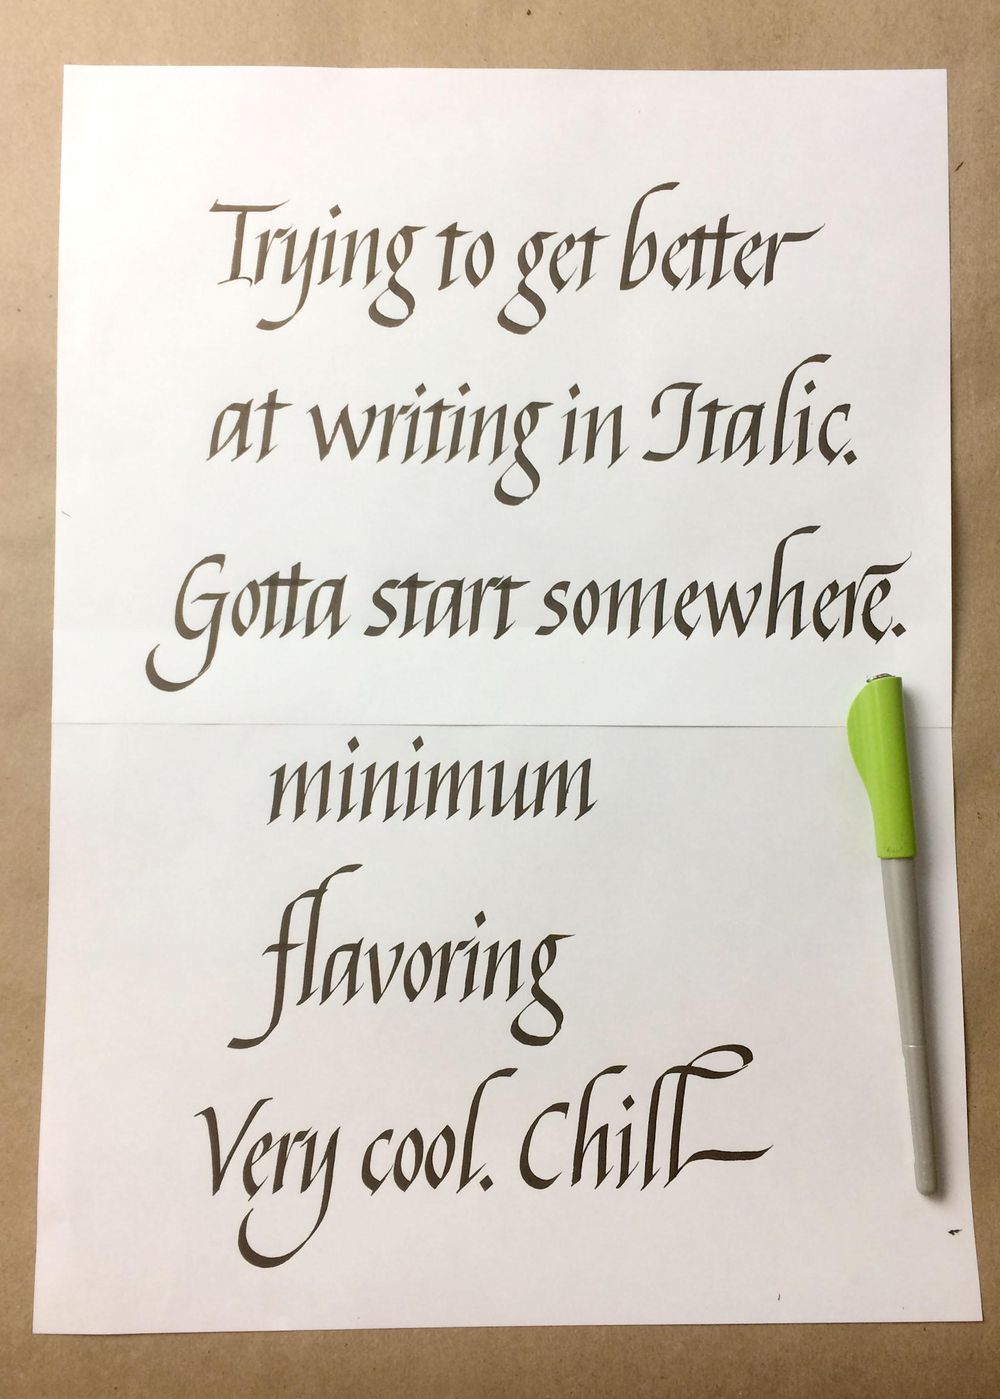 Trying to get better
at writing in Italic.
Gotta start somewhere.
minimum
flavoring
Very cool. Chill